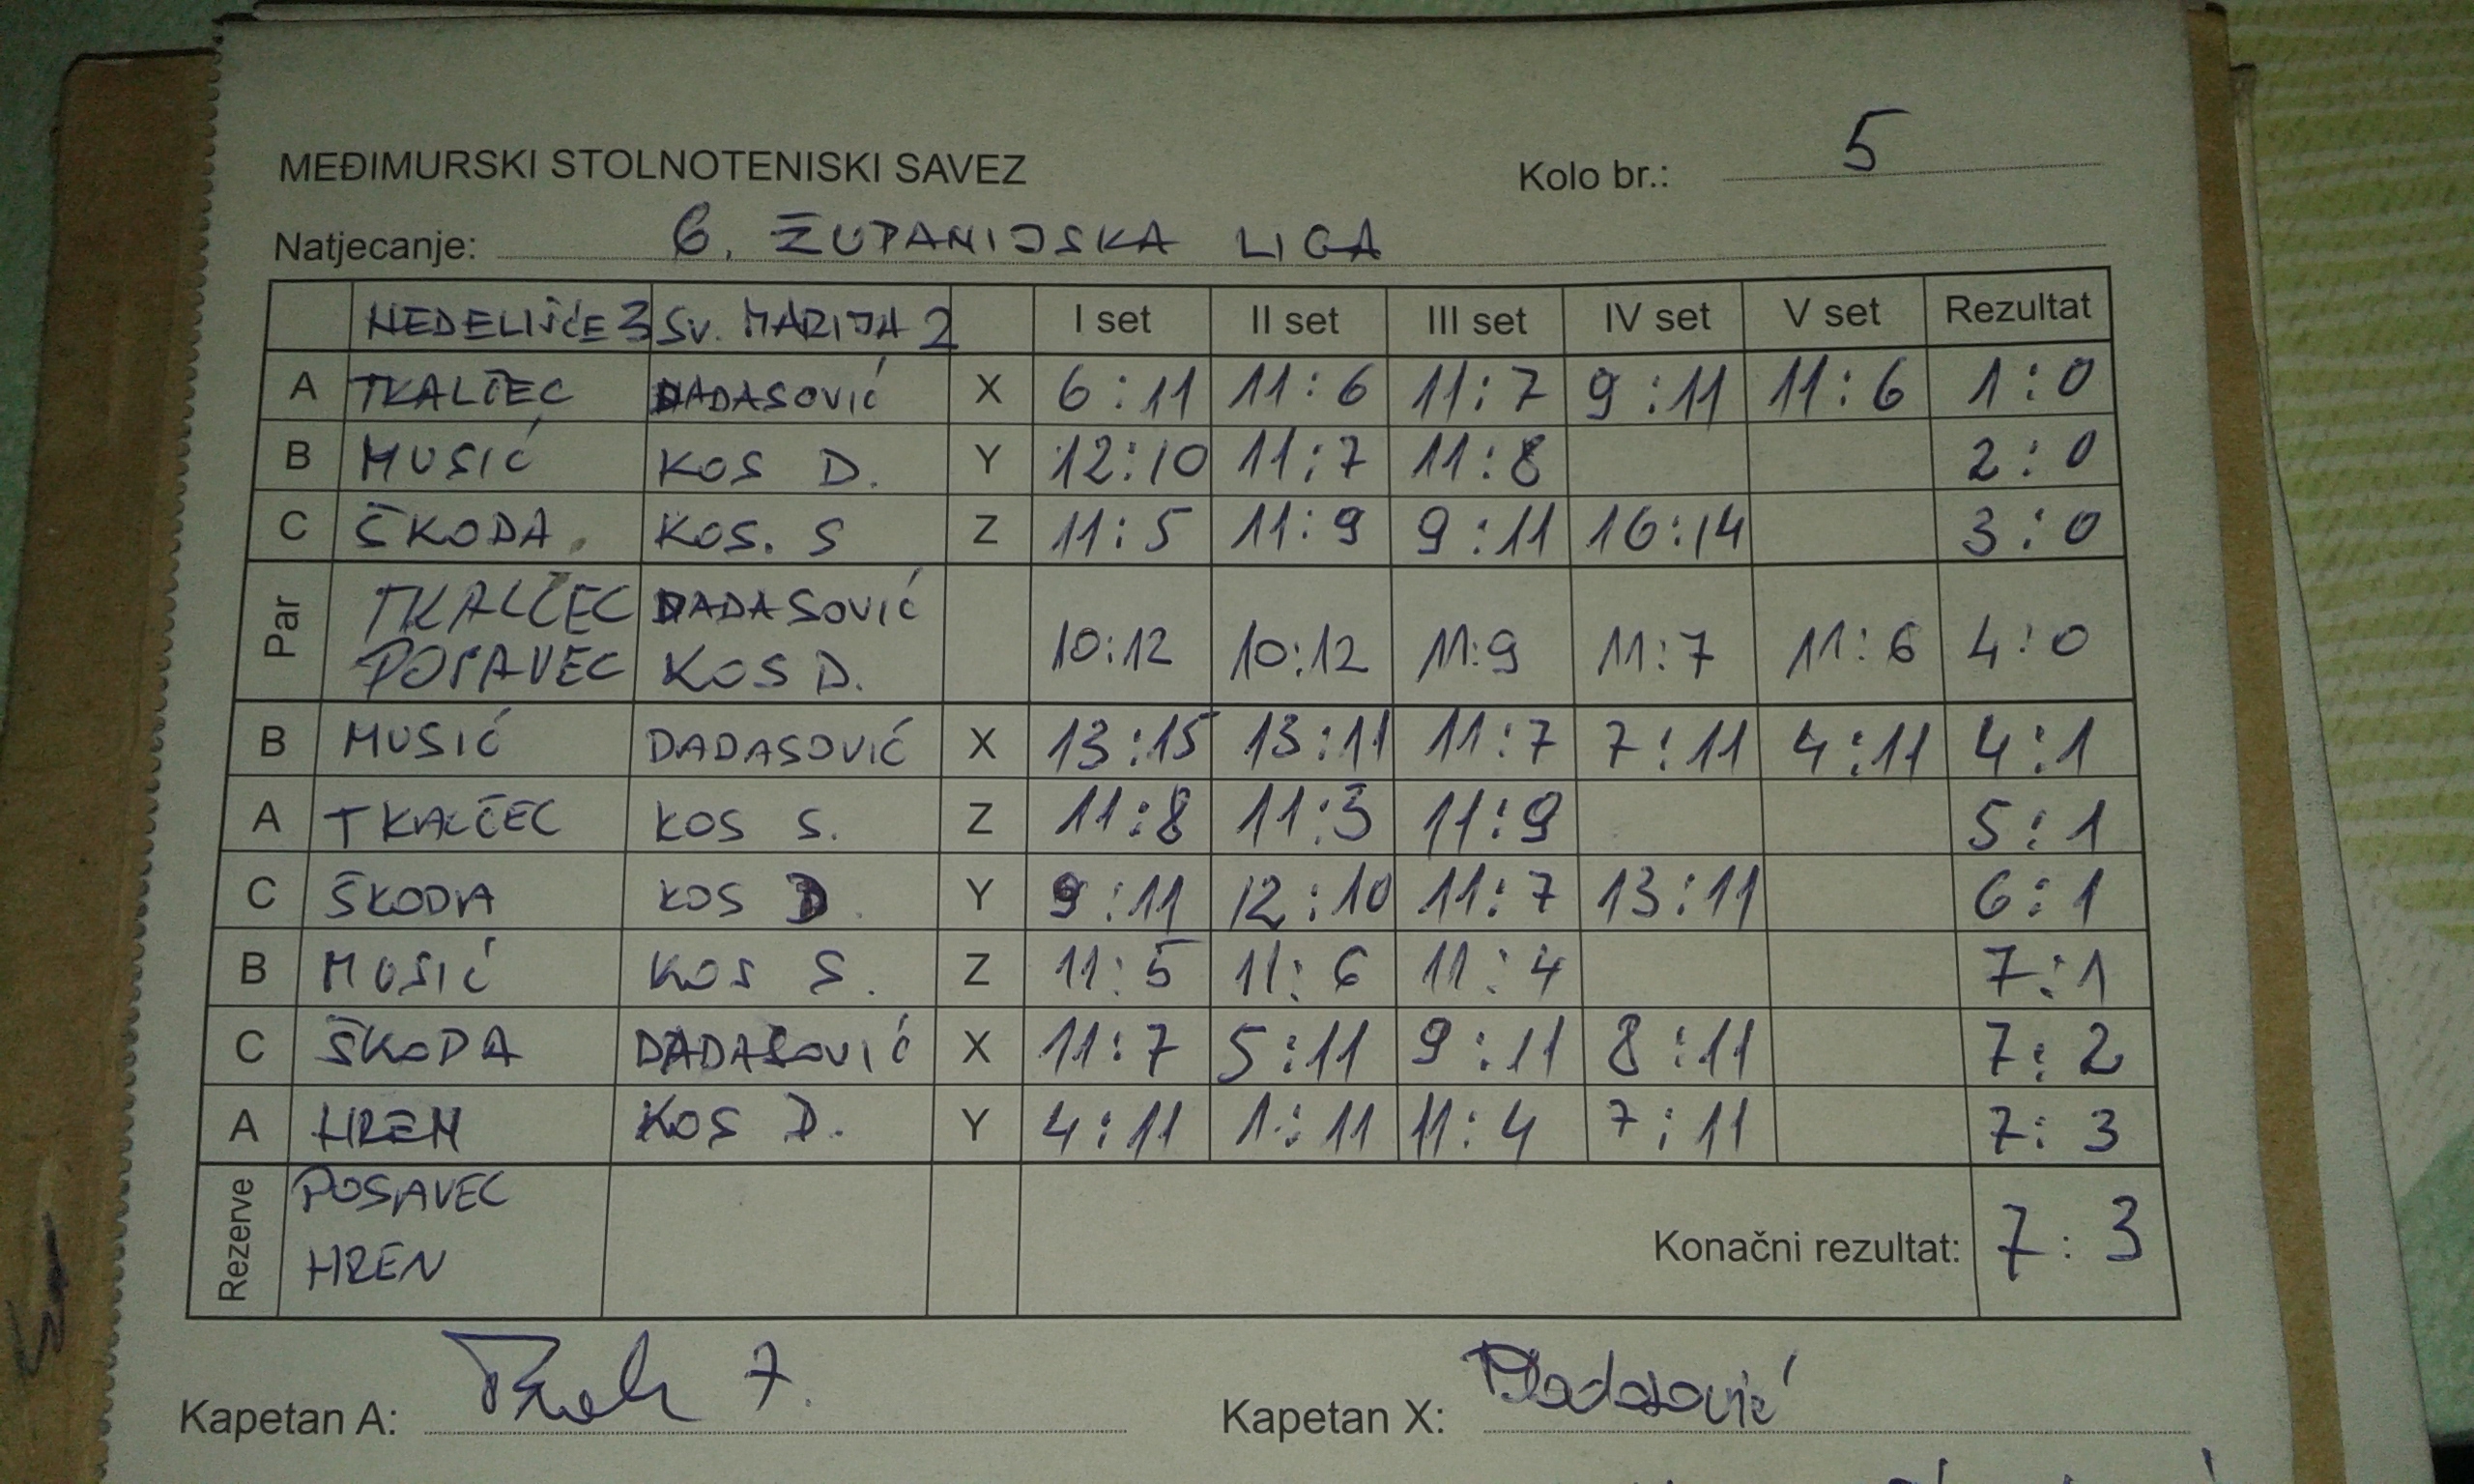 MEĐIMURSKI STOLNOTENISKI SAVEZ Kolo br.: 5
Natjecanje: 6. ŽUPANIJSKA LIGA
NEDELIŠĆE 3 SV. MARIJA 2 I set II set III set IV set V set Rezultat
A TKALČEC DADASOVIĆ X 6:11 11:6 11:7 9:11 11:6 1:0
B MUSIĆ KOS D. Y 12:10 11:7 11:8 2:0
C ŠKODA KOS. S Z 11:5 11:9 9:11 16:14 3:0
Par TKALČEC DADASOVIĆ
POSAVEC KOS D. 10:12 10:12 11:9 11:7 11:6 4:0
B MUSIĆ DADASOVIĆ X 13:15 13:11 11:7 7:11 4:11 4:1
A TKALČEC KOS S. Z 11:8 11:3 11:9 5:1
C ŠKODA KOS D. Y 9:11 12:10 11:7 13:11 6:1
B MUSIĆ KOS S. Z 11:5 11:6 11:4 7:1
C ŠKODA DADASOVIĆ X 11:7 5:11 9:11 8:11 7:2
A HREN KOS D. Y 4:11 1:11 11:4 7:11 7:3
Rezerve POSAVEC
HREN Konačni rezultat: 7:3
Kapetan A: Kapetan X: Dadasović